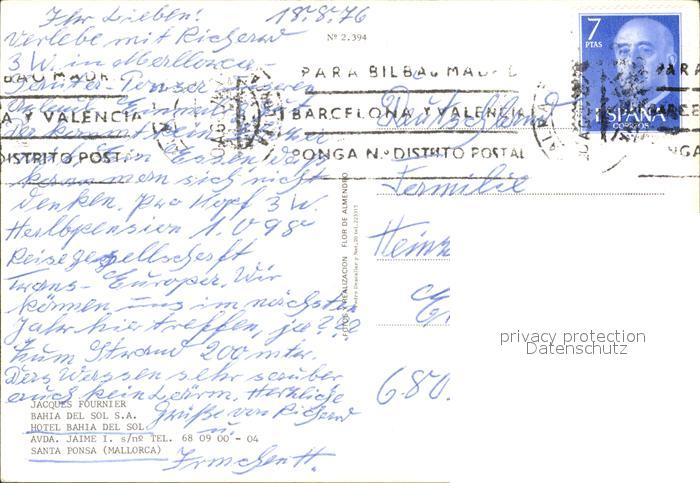 Ihr Lieben! 18.8.76
Verlebe mit Richard
3 W. in Mallorca-
Nº 2.394
7
PTAS
ESPAÑA
CORREOS
BAO MADR
PARA BILBAO MADRI
A Y VALENCIA
BARCELONA Y VALENCIA
DISTRITO POST.
PONGA N.º DISTRITO POSTAL
Deutschland
kann man sich nicht
denken. Pro Kopf 3 W.
Halbpension 1.098
Reisegesellschaft
Trans-Europa. Wir
können uns im nächsten
Jahr hier treffen, ja???
Zum Strand 200 mtr.
Das Wasser sehr sauber
auch kein Lärm. Herzliche
Grüße von Richard
u.
Irmchen H.
Familie
Heinz
680.
FOTOS Y REALIZACION FLOR DE ALMENDRO
privacy protection
Datenschutz
JACQUES FOURNIER
BAHIA DEL SOL S.A.
HOTEL BAHIA DEL SOL
AVDA. JAIME I. s/nº TEL. 68 09 00 - 04
SANTA PONSA (MALLORCA)